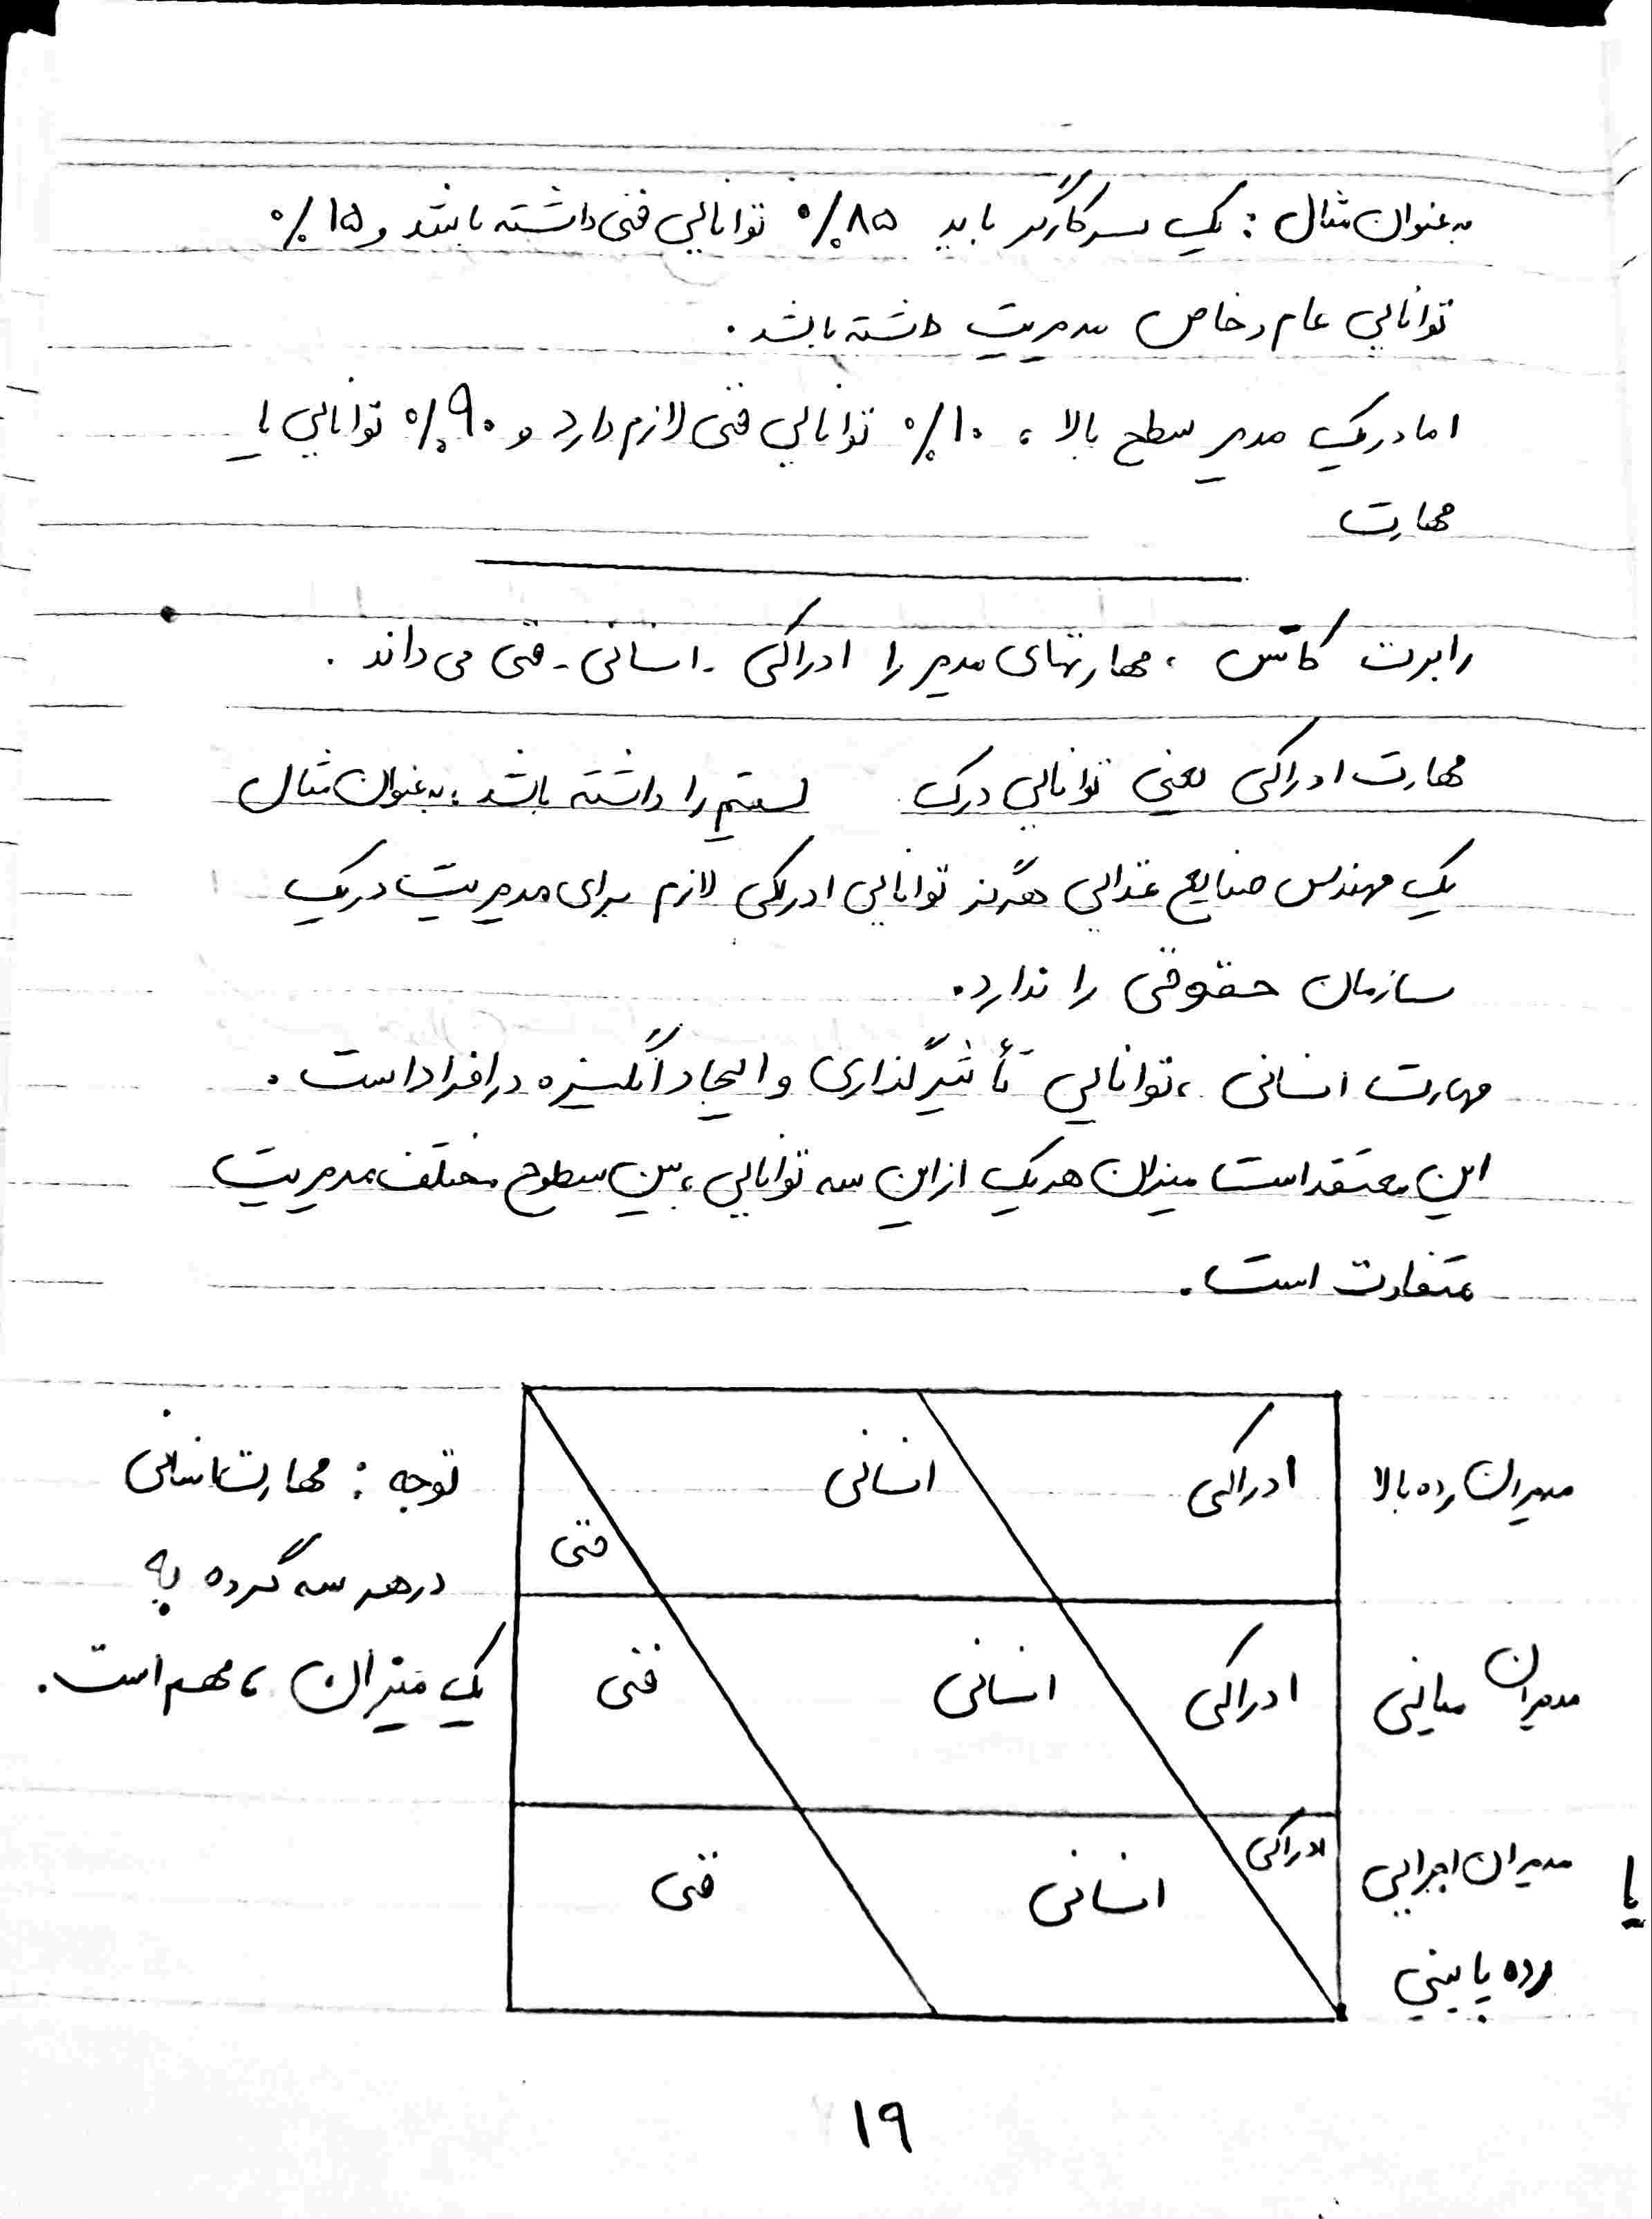 به عنوان مثال : یک سرکارگر باید ۸۵٪ توانایی فنی داشته باشد و ۱۵٪
توانایی عام و خاص مدیریت داشته باشد .
اما در یک مدیر سطح بالا ، ۱۰٪ توانایی فنی لازم دارد و ۹۰٪ توانایی یا
مهارت
رابرت کاتس ، مهارتهای مدیر را ادراکی - انسانی - فنی می داند .
مهارت ادراکی یعنی توانایی درک سیستم را داشته باشد ، به عنوان مثال
یک مهندس صنایع غذایی هرگز توانایی ادراکی لازم برای مدیریت در یک
سازمان حقوقی را ندارد .
مهارت انسانی ، توانایی تأثیرگذاری و ایجاد انگیزه در افراد است .
این معتقد است میزان هر یک از این سه توانایی ، بین سطوح مختلف مدیریت
متفاوت است .
مدیران رده بالا
ادراکی
انسانی
فنی
توجه : مهارت انسانی
در هر سه گروه به
یک میزان ، مهم است .
مدیران میانی
ادراکی
انسانی
فنی
مدیران اجرایی
یا
رده پایینی
ادراکی
انسانی
فنی
۱۹